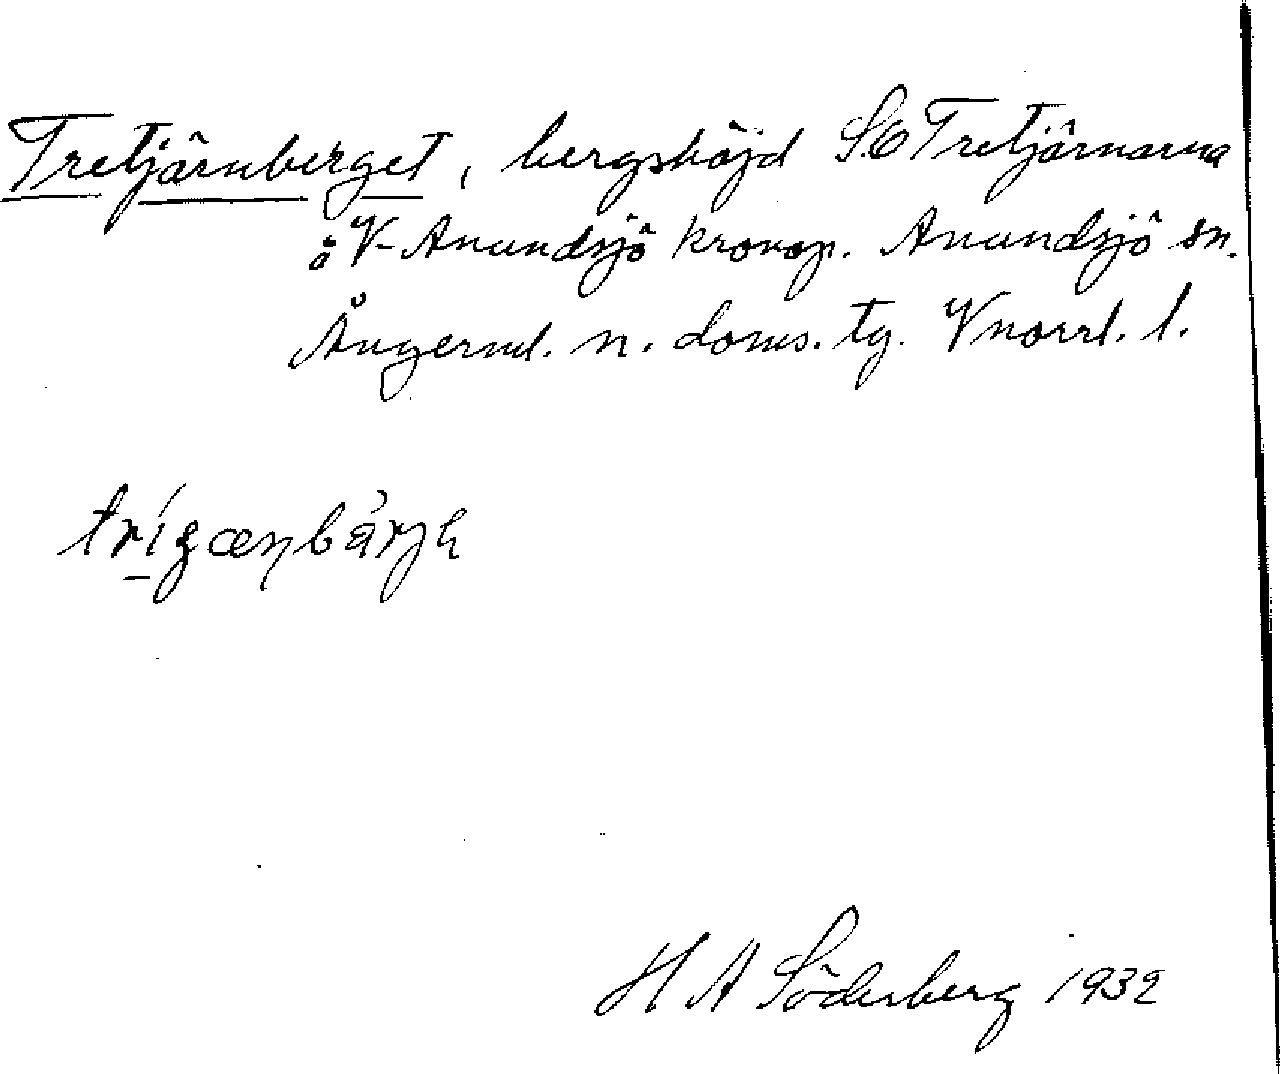 Tretjärnberget, bergshöjd S.O Tretjärnarna
å V-Anundsjö kronop. Anundsjö sn.
Ångerml. n. doms. tg. Vnorrl. l.
H A Söderberg 1932